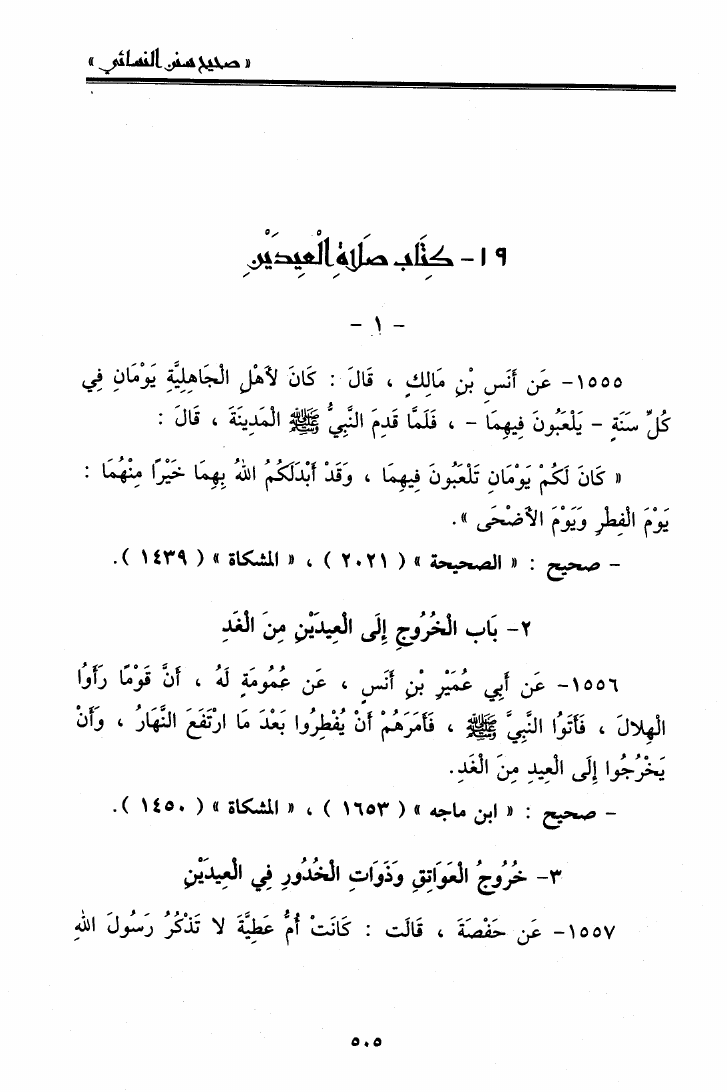 « صحيح سنن النسائي »
١٩- كِتَاب صَلَاةِ الْعِيدَيْنِ
- ١ -
١٥٥٥- عَن أَنَسِ بْنِ مَالِكٍ ، قَالَ : كَانَ لأَهْلِ الْجَاهِلِيَّةِ يَوْمَانِ فِي
كُلِّ سَنَةٍ - يَلْعَبُونَ فِيهِمَا - ، فَلَمَّا قَدِمَ النَّبِيُّ ﷺ الْمَدِينَةَ ، قَالَ :
« كَانَ لَكُمْ يَوْمَانِ تَلْعَبُونَ فِيهِمَا ، وَقَدْ أَبْدَلَكُمُ اللهُ بِهِمَا خَيْرًا مِنْهُمَا :
يَوْمَ الْفِطْرِ وَيَوْمَ الأَضْحَى ».
- صحيح : « الصحيحة » ( ٢٠٢١ ) ، « المشكاة » ( ١٤٣٩ ).
٢- بَاب الْخُرُوجِ إِلَى الْعِيدَيْنِ مِنَ الْغَدِ
١٥٥٦- عَن أَبِي عُمَيْرِ بْنِ أَنَسٍ ، عَن عُمُومَةٍ لَهُ ، أَنَّ قَوْمًا رَأَوُا
الْهِلالَ ، فَأَتَوُا النَّبِيَّ ﷺ ، فَأَمَرَهُمْ أَنْ يُفْطِرُوا بَعْدَ مَا ارْتَفَعَ النَّهَارُ ، وَأَنْ
يَخْرُجُوا إِلَى الْعِيدِ مِنَ الْغَدِ.
- صحيح : « ابن ماجه » ( ١٦٥٣ ) ، « المشكاة » ( ١٤٥٠ ).
٣- خُرُوجُ الْعَوَاتِقِ وَذَوَاتِ الْخُدُورِ فِي الْعِيدَيْنِ
١٥٥٧- عَن حَفْصَةَ ، قَالَت : كَانَتْ أُمُّ عَطِيَّةَ لا تَذْكُرُ رَسُولَ اللهِ
٥٠٥